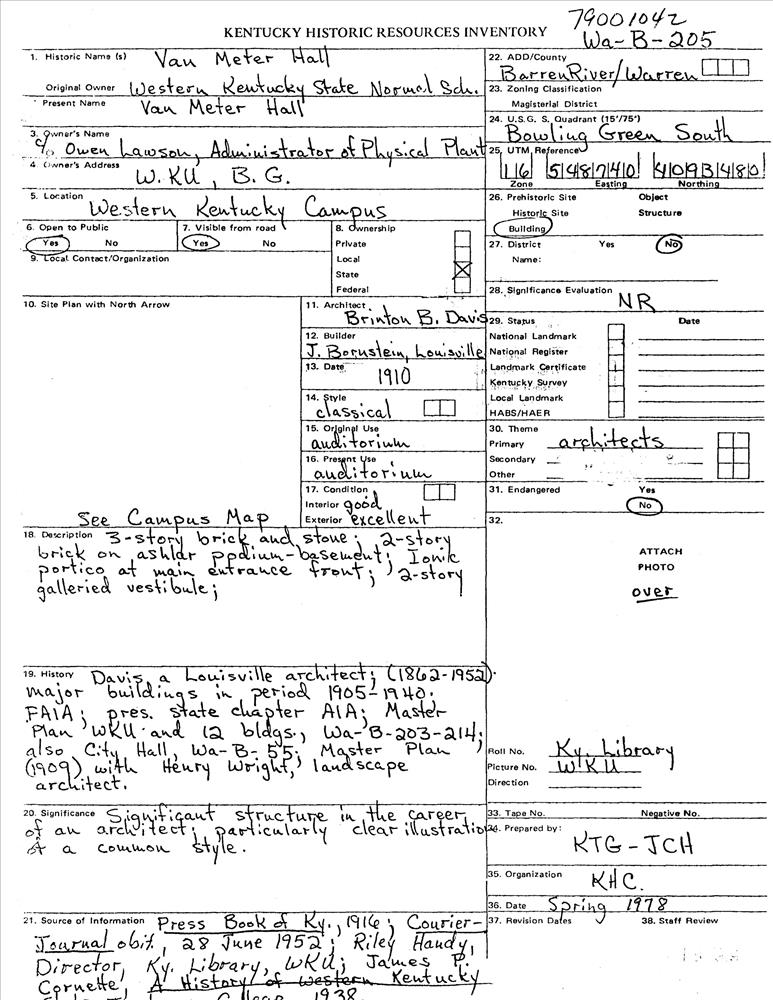 79001042
KENTUCKY HISTORIC RESOURCES INVENTORY
Wa-B-205
1. Historic Name (s) Van Meter Hall
Original Owner Western Kentucky State Normal Sch.
Present Name Van Meter Hall
3. Owner's Name
c/o Owen Lawson, Administrator of Physical Plant
4. Owner's Address
W.KU, B.G.
5. Location
Western Kentucky Campus
6. Open to Public
Yes No
7. Visible from road
Yes No
8. Ownership
Private
Local
State
Federal
9. Local Contact/Organization
10. Site Plan with North Arrow
See Campus Map
11. Architect
Brinton B. Davis
12. Builder
J. Bornstein, Louisville
13. Date
1910
14. Style
classical
15. Original Use
auditorium
16. Present Use
auditorium
17. Condition
Interior good
Exterior excellent
18. Description 3-story brick and stone; 2-story
brick on ashlar podium-basement; Ionic
portico at main entrance front; 2-story
galleried vestibule;
19. History Davis, a Louisville architect; (1862-1952).
major buildings in period 1905-1940.
FAIA; pres. state chapter AIA; Master
Plan WKU and 12 bldgs., Wa-B-203-214;
also City Hall, Wa-B-55; Master Plan
(1909) with Henry Wright, landscape
architect.
20. Significance Significant structure in the career
of an architect; particularly clear illustration
of a common style.
21. Source of Information Press Book of Ky., 1916; Courier-
Journal obit., 28 June 1952; Riley Handy,
Director, Ky. Library, WKU; James P.
Cornette, A History of Western Kentucky
College 1938.
22. ADD/County
BarrenRiver/Warren
23. Zoning Classification
Magisterial District
24. U.S.G. S. Quadrant (15'/75')
Bowling Green South
25. UTM Reference
16 548740 4093480
Zone Easting Northing
26. Prehistoric Site Object
Historic Site Structure
Building
27. District Yes No
Name:
28. Significance Evaluation
NR
29. Status Date
National Landmark
National Register
Landmark Certificate
Kentucky Survey
Local Landmark
HABS/HAER
30. Theme
Primary architects
Secondary
Other
31. Endangered Yes
No
32.
ATTACH
PHOTO
over
Roll No. Ky. Library
Picture No. WKU
Direction
33. Tape No. Negative No.
34. Prepared by:
KTG-JCH
35. Organization
KHC.
36. Date Spring 1978
37. Revision Dates 38. Staff Review